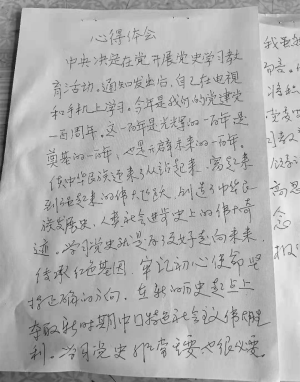 心得体会
中央决定在党开展党史学习教
育活动。通知发出后，自己在电视
和手机上学习。今年是我们的党建党
一百周年。这一百年是光辉的一百年是
奠基的一百年，也是开辟未来的一百年。
使中华民族迎来了从站起来，富起来
到强起来的伟大飞跃，创造了中华民
族发展史，人类社会进步史上的伟大奇
迹。学习党史就是为了更好走向未来，
传承红色基因，牢记初心使命坚
持正确的方向。在新的历史起点上
夺取新时期中国特色社会主义伟大胜
利。学习党史非常重要也很必要。